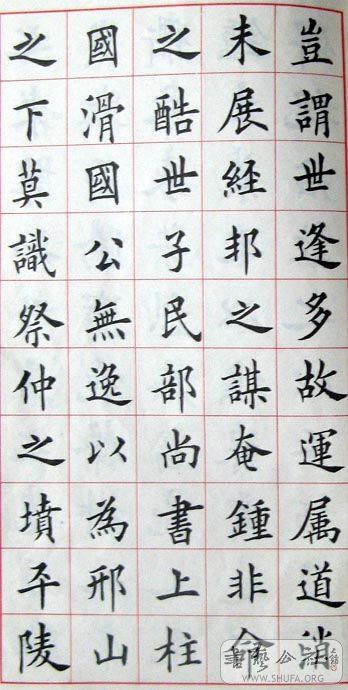 豈謂世逢多故運属道消
未展經邦之謀奄鍾非命
之酷世子民部尚書上柱
國滑國公無逸以為邢山
之下莫識祭仲之墳平陵
WWW.SHUFA.ORG